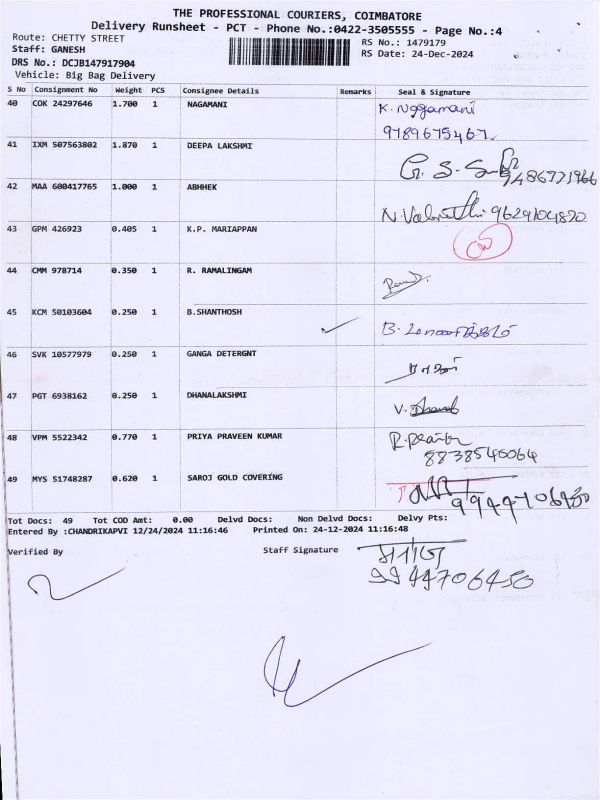 THE PROFESSIONAL COURIERS, COIMBATORE
Delivery Runsheet - PCT - Phone No.:0422-3505555 - Page No.:4
Route: CHETTY STREET
RS No.: 1479179
Staff: GANESH
RS Date: 24-Dec-2024
DRS No.: DCJB147917904
Vehicle: Big Bag Delivery
S No Consignment No Weight PCS Consignee Details Remarks Seal & Signature
40 COK 24297646 1.700 1 NAGAMANI K. Nagamani
9789675467
41 IXM 507563802 1.870 1 DEEPA LAKSHMI
9486771966
42 MAA 600417765 1.000 1 ABHHEK
9629104870
43 GPM 426923 0.405 1 K.P. MARIAPPAN
44 CMM 978714 0.350 1 R. RAMALINGAM
45 KCM 50103604 0.250 1 B.SHANTHOSH
46 SVK 10577979 0.250 1 GANGA DETERGNT
47 PGT 6938162 0.250 1 DHANALAKSHMI
48 VPM 5522342 0.770 1 PRIYA PRAVEEN KUMAR
8838540064
49 MYS 51748287 0.620 1 SAROJ GOLD COVERING
9944706450
Tot Docs: 49 Tot COD Amt: 0.00 Delvd Docs: Non Delvd Docs: Delvy Pts:
Entered By :CHANDRIKAPVI 12/24/2024 11:16:46 Printed On: 24-12-2024 11:16:48
Verified By Staff Signature
9944706450